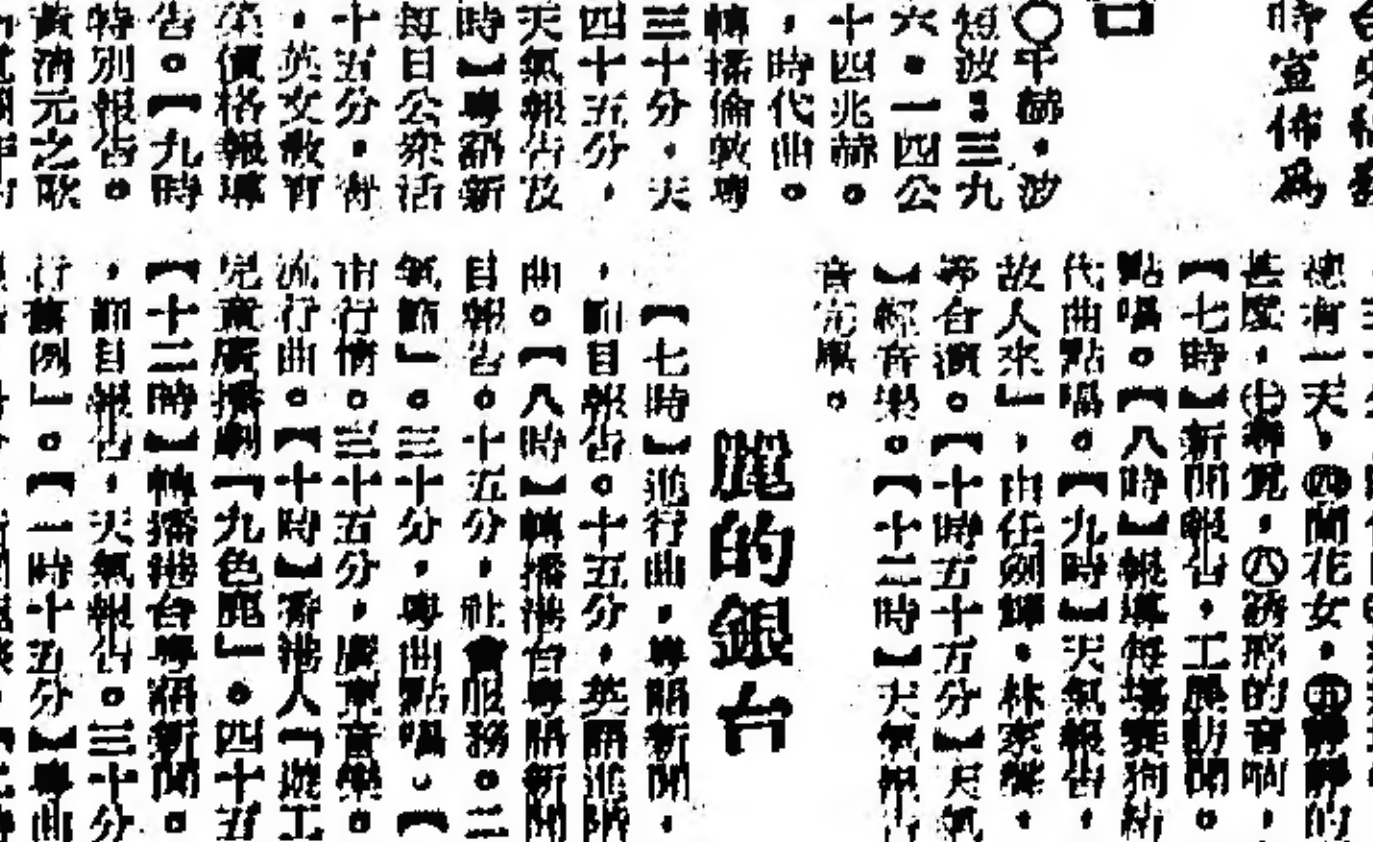 時宣佈為
〇千赫，波
短波：三九
六．一四公
十四兆赫。
，時代曲。
轉播倫敦粵
三十分，天
四十五分，
天氣報告及
時】粵語新
每日公眾活
十五分，
，英文教育
價格報導
告。【九時
特別報告。
黃清元之歌
總有一天，㈣蘭花女，㈤靜靜的
甚麼，㈦㈧誘惑的音响，
【七時】新聞報告，工展訪問。
點唱。【八時】報導每場賽狗結
代曲點唱。【九時】天氣報告，
故人來」，由任劍輝．林家聲．
等合演。【十時五十五分】天氣
】輕音樂。【十二時】天氣報告
音完畢。
麗的銀台
【七時】進行曲，粵語新聞，
，節目報告。十五分，英語進階
曲。【八時】轉播港台粵語新聞
目報告。十五分，社會服務。二
氣節」。三十分，粵曲點唱。【
市行情。三十五分，廣東音樂。
流行曲。【十時】香港人「遊工
兒童廣播劇「九色鹿」。四十五
【十二時】轉播港台粵語新聞。
，節目報告，天氣報告。三十分
行舊例」。【一時十五分】粵曲